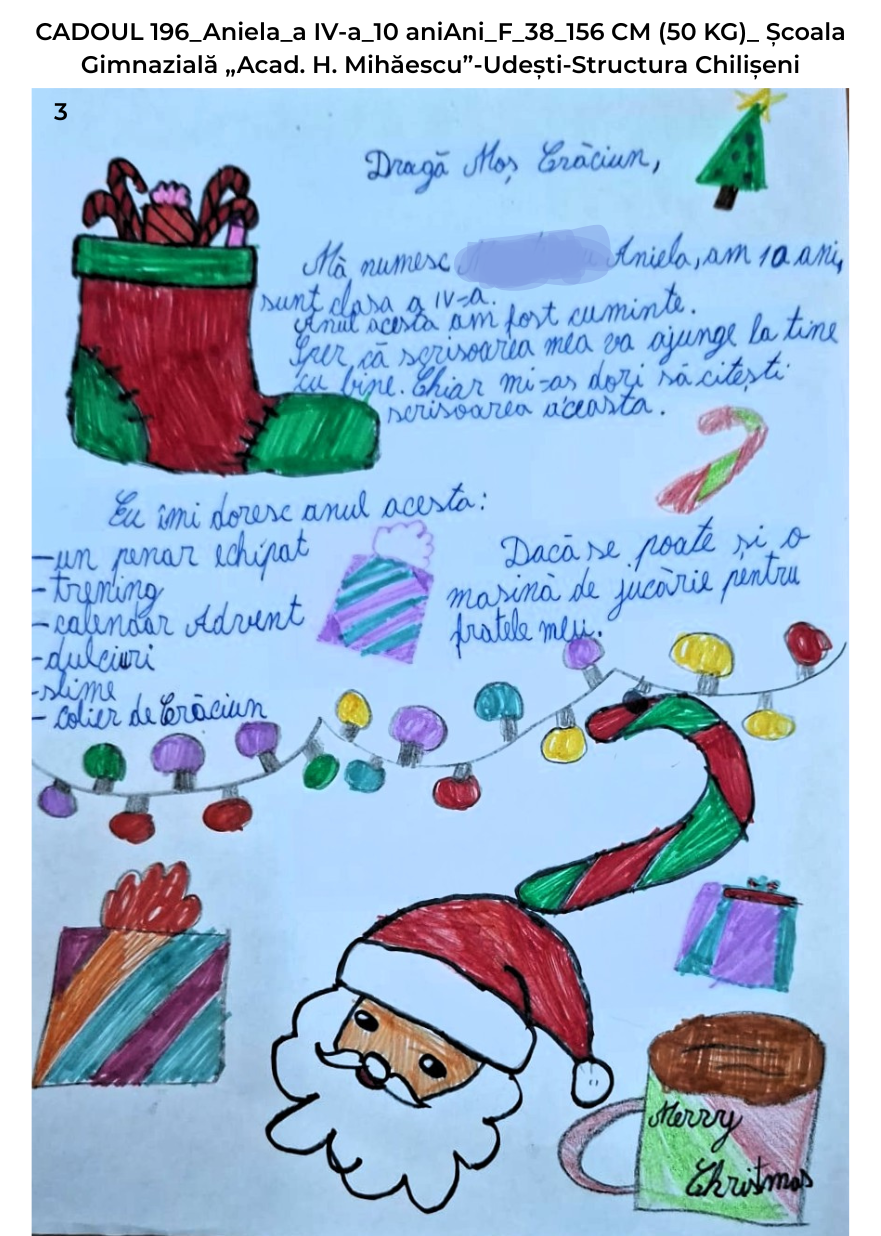 CADOUL 196_Aniela_a IV-a_10 aniAni_F_38_156 CM (50 KG)_ Școala
Gimnazială „Acad. H. Mihăescu”-Udești-Structura Chilișeni
3
Dragă Moș Crăciun,
Mă numesc Aniela, am 10 ani,
sunt clasa a IV-a.
Anul acesta am fost cuminte.
Sper că scrisoarea mea va ajunge la tine
cu bine. Chiar mi-as dori să citești
scrisoarea aceasta.
Eu îmi doresc anul acesta:
-un penar echipat
-trening
-calendar Advent
-dulciuri
-slime
- colier de Crăciun
Dacă se poate și o
masină de jucărie pentru
fratele meu.
Merry
Christmas